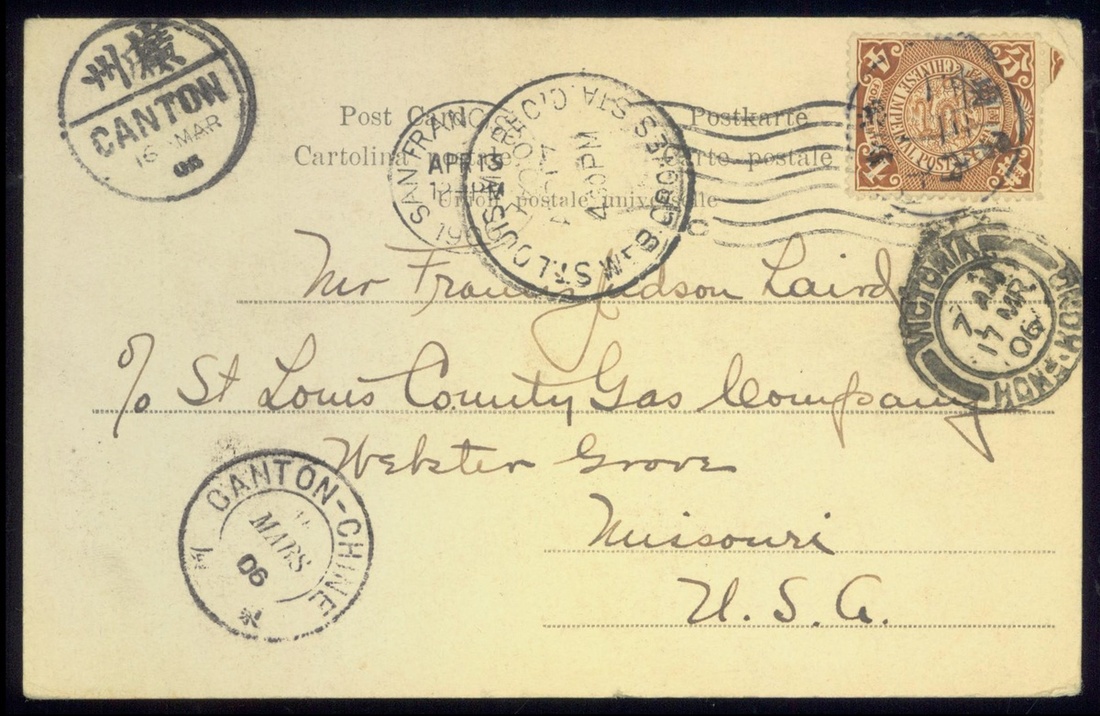 州廣
CANTON
16 MAR
06
Post Card
Postkarte
Cartolina postale
Carte postale
Union postale universelle
SAN FRAN
APR 13
12 PM
19
ST. LOUIS MO
REC'D
4 30 PM
WEB GROVES STA.
CHINESE IMPERIAL POST
4
VICTORIA
HONG-KONG
7 AM
17 MR
06
Mr Francis Judson Laird
c/o St Louis County Gas Company
Webster Grove
Missouri
U. S. A.
CANTON-CHINE
MARS
06